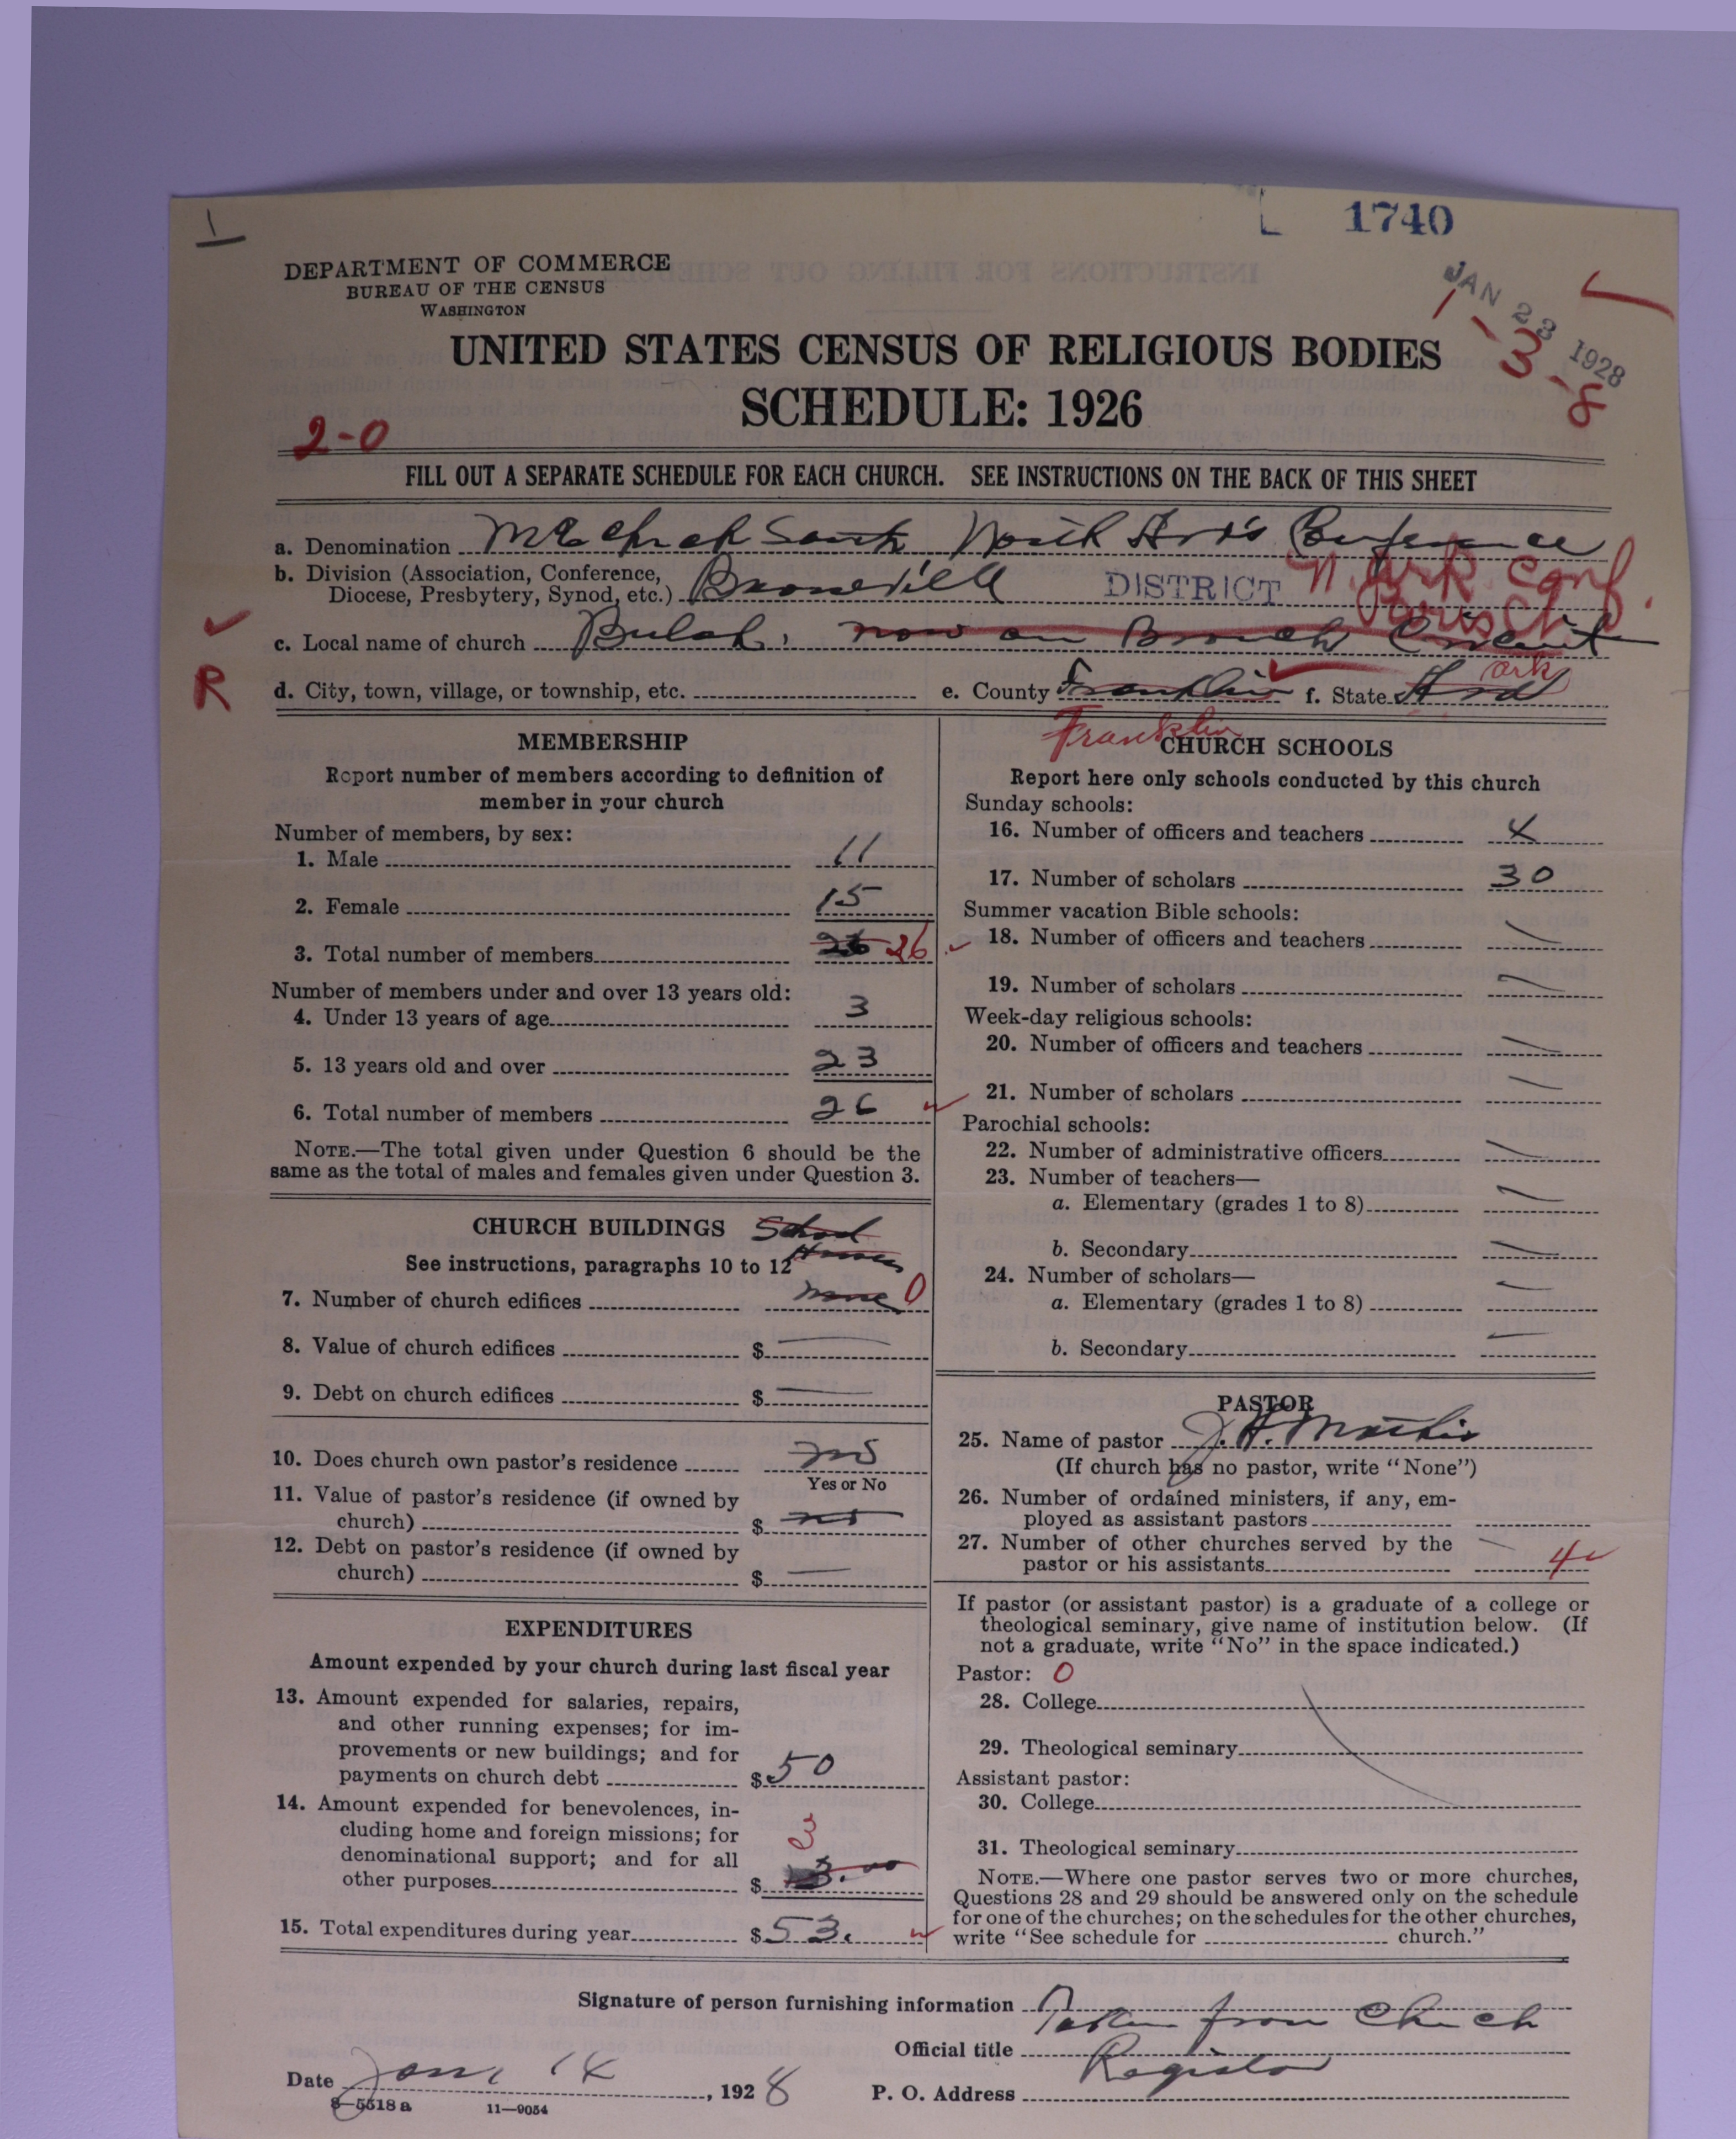 1
1740
DEPARTMENT OF COMMERCE
BUREAU OF THE CENSUS
WASHINGTON
JAN 23 1928
1-3-8
UNITED STATES CENSUS OF RELIGIOUS BODIES
SCHEDULE: 1926
2-0
FILL OUT A SEPARATE SCHEDULE FOR EACH CHURCH. SEE INSTRUCTIONS ON THE BACK OF THIS SHEET
a. Denomination M E Church South North Conference
b. Division (Association, Conference, Diocese, Presbytery, Synod, etc.) Booneville DISTRICT N. Ark. Conf.
Paris Ch
c. Local name of church Bulah, now on Branch Circuit
R
d. City, town, village, or township, etc. e. County Franklin f. State Ark
Franklin
MEMBERSHIP
Report number of members according to definition of member in your church
Number of members, by sex:
1. Male 11
2. Female 15
3. Total number of members 26 26
Number of members under and over 13 years old:
4. Under 13 years of age 3
5. 13 years old and over 23
6. Total number of members 26
NOTE.—The total given under Question 6 should be the same as the total of males and females given under Question 3.
CHURCH BUILDINGS School House
See instructions, paragraphs 10 to 12
7. Number of church edifices none 0
8. Value of church edifices $
9. Debt on church edifices $
10. Does church own pastor's residence no
Yes or No
11. Value of pastor's residence (if owned by church) $ no
12. Debt on pastor's residence (if owned by church) $
EXPENDITURES
Amount expended by your church during last fiscal year
13. Amount expended for salaries, repairs, and other running expenses; for improvements or new buildings; and for payments on church debt $ 50
14. Amount expended for benevolences, including home and foreign missions; for denominational support; and for all other purposes $ 3.00 3
15. Total expenditures during year $ 53.
CHURCH SCHOOLS
Report here only schools conducted by this church
Sunday schools:
16. Number of officers and teachers 4
17. Number of scholars 30
Summer vacation Bible schools:
18. Number of officers and teachers
19. Number of scholars
Week-day religious schools:
20. Number of officers and teachers
21. Number of scholars
Parochial schools:
22. Number of administrative officers
23. Number of teachers—
a. Elementary (grades 1 to 8)
b. Secondary
24. Number of scholars—
a. Elementary (grades 1 to 8)
b. Secondary
PASTOR
25. Name of pastor J. H. Martin
(If church has no pastor, write "None")
26. Number of ordained ministers, if any, employed as assistant pastors
27. Number of other churches served by the pastor or his assistants 4
If pastor (or assistant pastor) is a graduate of a college or theological seminary, give name of institution below. (If not a graduate, write "No" in the space indicated.)
Pastor: 0
28. College
29. Theological seminary
Assistant pastor:
30. College
31. Theological seminary
NOTE.—Where one pastor serves two or more churches, Questions 28 and 29 should be answered only on the schedule for one of the churches; on the schedules for the other churches, write "See schedule for church."
Signature of person furnishing information Taken from Church
Official title Register
Date Jan, 14, 1928
P. O. Address
8—5518 a 11—9054